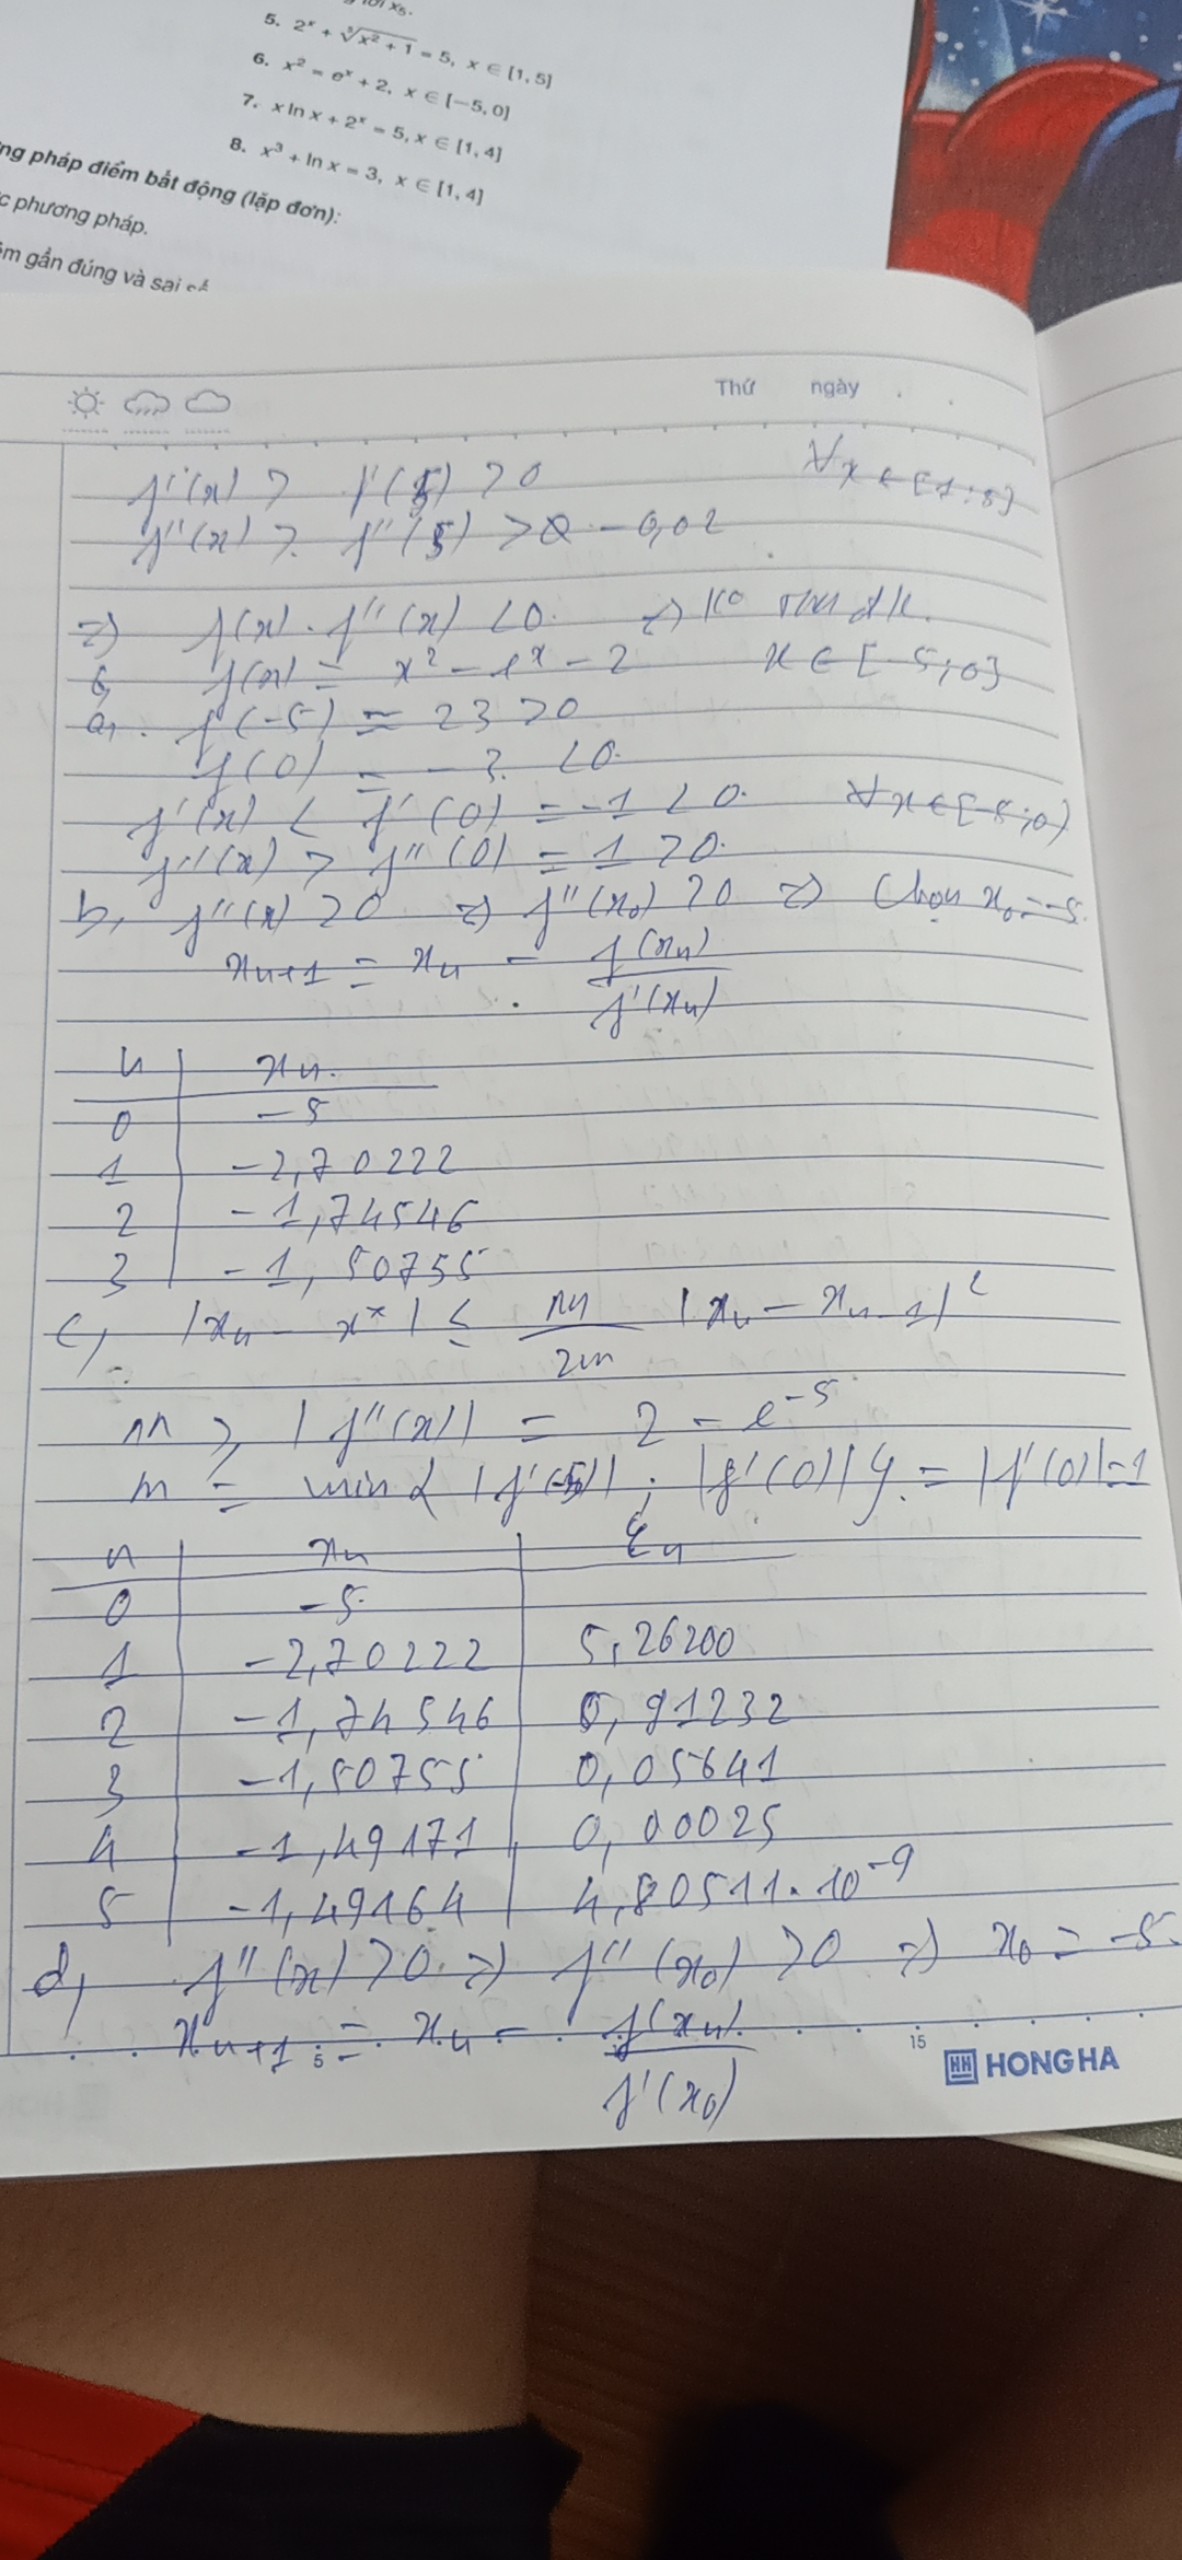 5. 2ˣ + ⁵√x² + 1 = 5, x ∈ [1, 5]
6. x² = eˣ + 2, x ∈ [−5, 0]
7. x ln x + 2ˣ = 5, x ∈ [1, 4]
8. x³ + ln x = 3, x ∈ [1, 4]
ng pháp điểm bất động (lặp đơn):
c phương pháp.
m gần đúng và sai số
Thứ ngày
f'(x) > f'(5) > 0 ∀x ∈ [1;5]
f''(x) > f''(5) > -0,02
=> f(x) . f''(x) < 0 => ko đk.
6, f(x) = x² - eˣ - 2 x ∈ [-5;0]
a, f(-5) = 23 > 0
f(0) = -3 < 0
f'(x) < f'(0) = -1 < 0 ∀x ∈ [-5;0)
f''(x) > f''(0) = 1 > 0
b, f''(x) > 0 => f''(x₀) > 0 => Chọn x₀ = -5
xₙ₊₁ = xₙ - f(xₙ) / f'(xₙ)
n xₙ
0 -5
1 -2,70222
2 -1,74546
3 -1,50755
c, |xₙ - x*| ≤ M / 2m |xₙ - xₙ₋₁|²
M ≥ |f''(x)| = 2 - e⁻⁵
m = min { |f'(-5)| ; |f'(0)| } = |f'(0)| = 1
n xₙ εₙ
0 -5
1 -2,70222 5,26200
2 -1,74546 0,91232
3 -1,50755 0,05641
4 -1,49171 0,00025
5 -1,49164 4,80511.10⁻⁹
d, f''(x) > 0 => f''(x₀) > 0 => x₀ = -5
xₙ₊₁ = xₙ - f(xₙ) / f'(x₀)
5 15
HH HONG HA